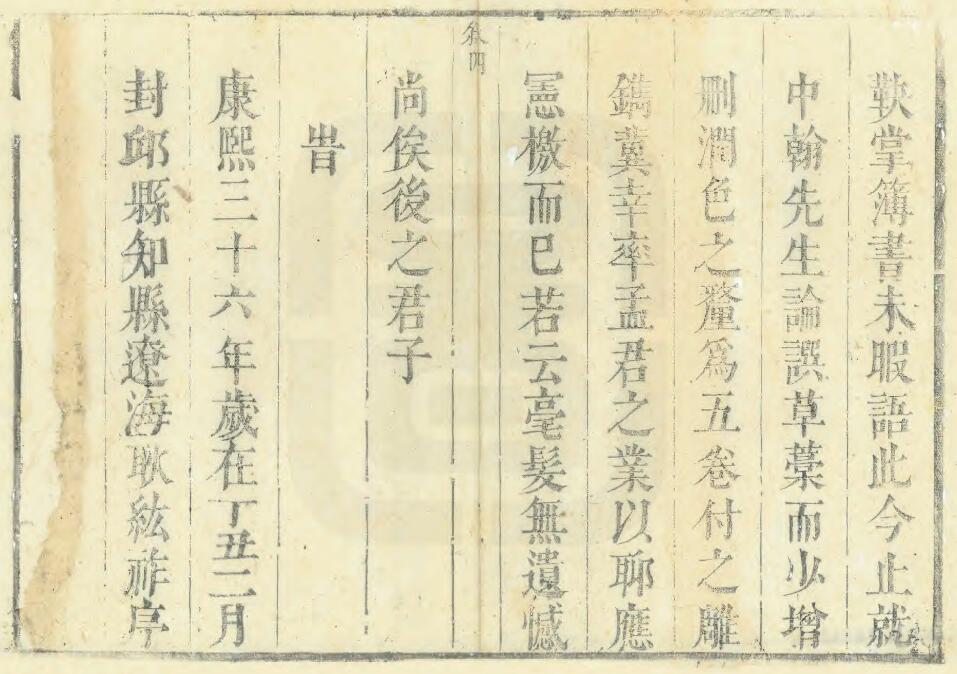 鞅掌簿書未暇語此今止就
中翰先生論譔草藁而少增
刪潤色之釐爲五卷付之離
鐫冀幸率孟君之業以聊應
憲檄而已若云毫髮無遺憾
叙四
尚俟後之君子
旹
康熙三十六年歲在丁丑二月
封邱縣知縣遼海耿紘祚序